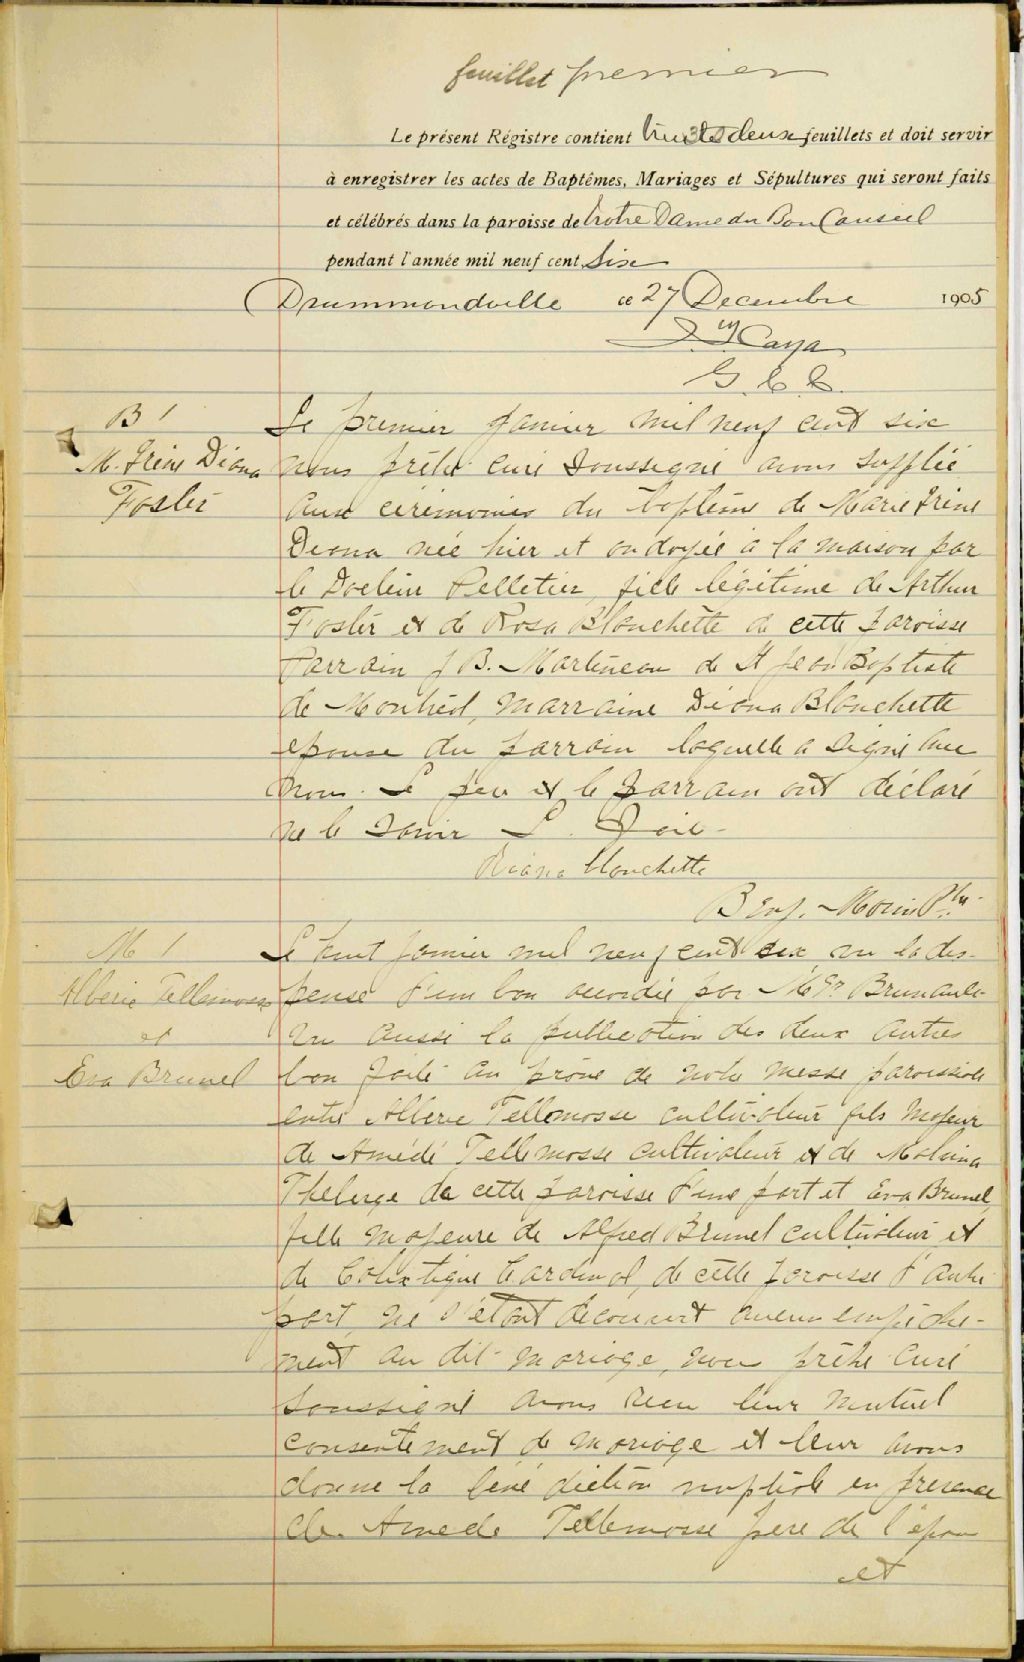 feuillet premier
Le présent Régistre contient trente deux feuillets et doit servir
à enregistrer les actes de Baptêmes, Mariages et Sépultures qui seront faits
et célébrés dans la paroisse de Notre Dame du Bon Conseil
pendant l'année mil neuf cent Six
Drummondville ce 27 Decembre 1905
Caya
G. C. C.
B 1
M. Irène Diana
Foster
Le premier janvier mil neuf cent six
nous prêtre curé soussigné avons supplée
aux cérémonies du baptême de Marie Irène
Diana née hier et ondoyée à la maison par
le Docteur Pelletier, fille légitime de Arthur
Foster et de Rosa Blanchette de cette paroisse
Parrain J B. Martineau de St Jean Baptiste
de Montréal, marraine Diana Blanchette
epouse du parrain laquelle a signé avec
nous. Le père et le parrain ont déclaré
ne le savoir L. Foie-
Diana Blanchette
Benj. Morin Ptre
M 1
Alberie Tellemosse
et
Eva Brunel
Le huit janvier mil neuf cent six, vu la dis-
pense d'un ban accordée par Mgr. Brunault
vu aussi la publication des deux autres
ban faite au prône de notre messe paroissiale
entre Alberie Tellemosse cultivateur fils majeur
de Amédé Tellemosse cultivateur et de Malvina
Theberge de cette paroisse d'une part et Eva Brunel,
fille majeure de Alfred Brunel cultivateur et
de Colixtique Cardinal, de cette paroisse d'autre
part, ne s'étant decouvert aucun empêche-
ment au dit mariage, nous prêtre curé
soussigné avons recu leur mutuel
consentement de mariage et leur avons
donne la béné diction nuptiale en presence
de Amede Tellemosse pere de l'epoux
et